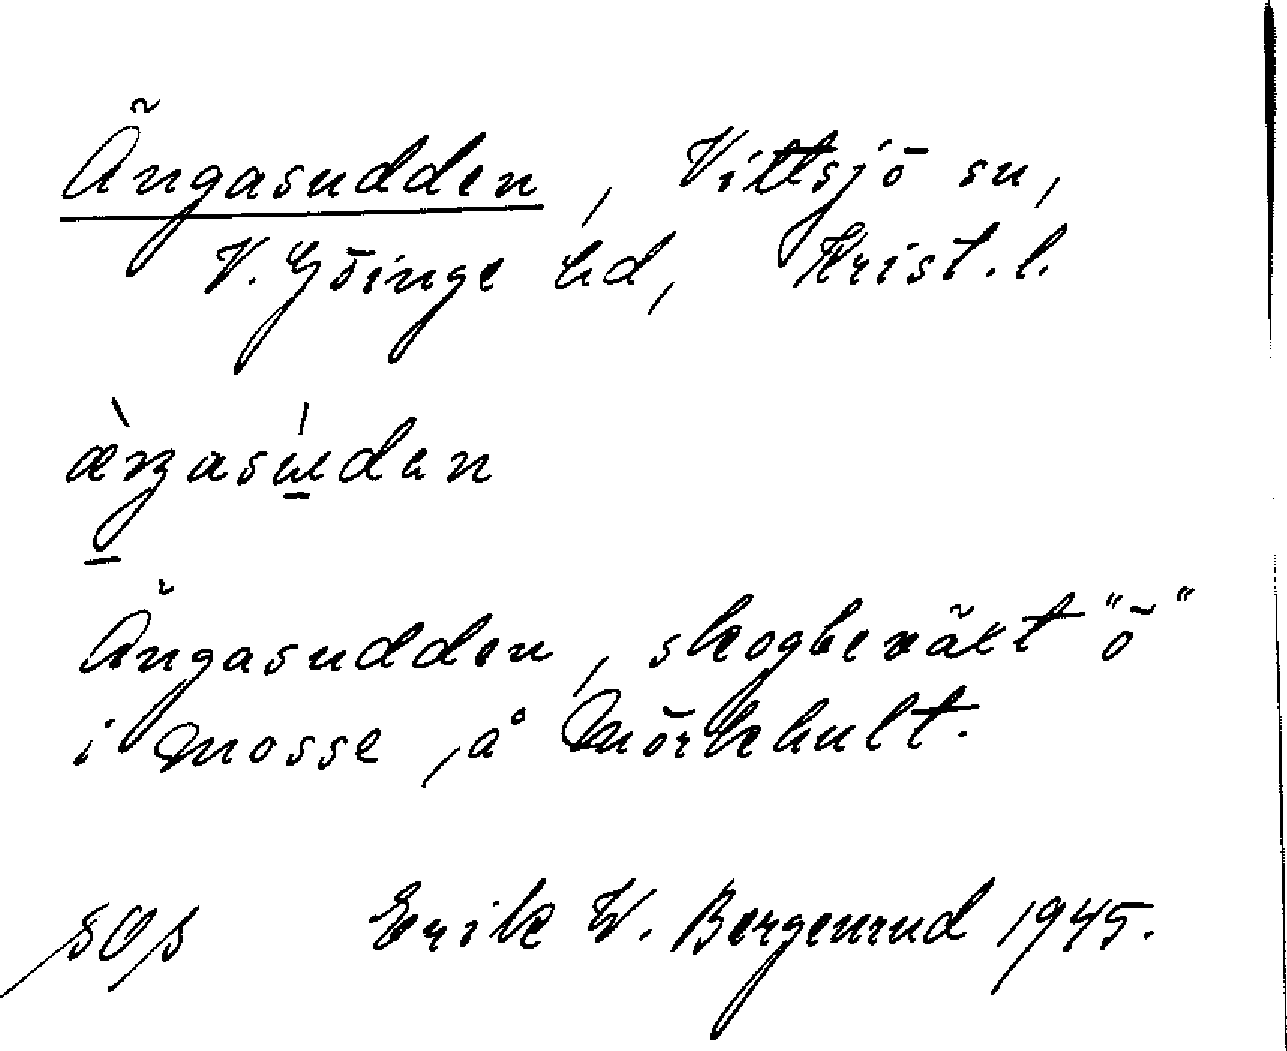 Ängasudden, Vittsjö sn,
V. Göinge hd, Krist. l.
Ängasudden, skogbeväxt "ö"
i mosse på Mörkhult.
Erik W. Bergenrud 1945.